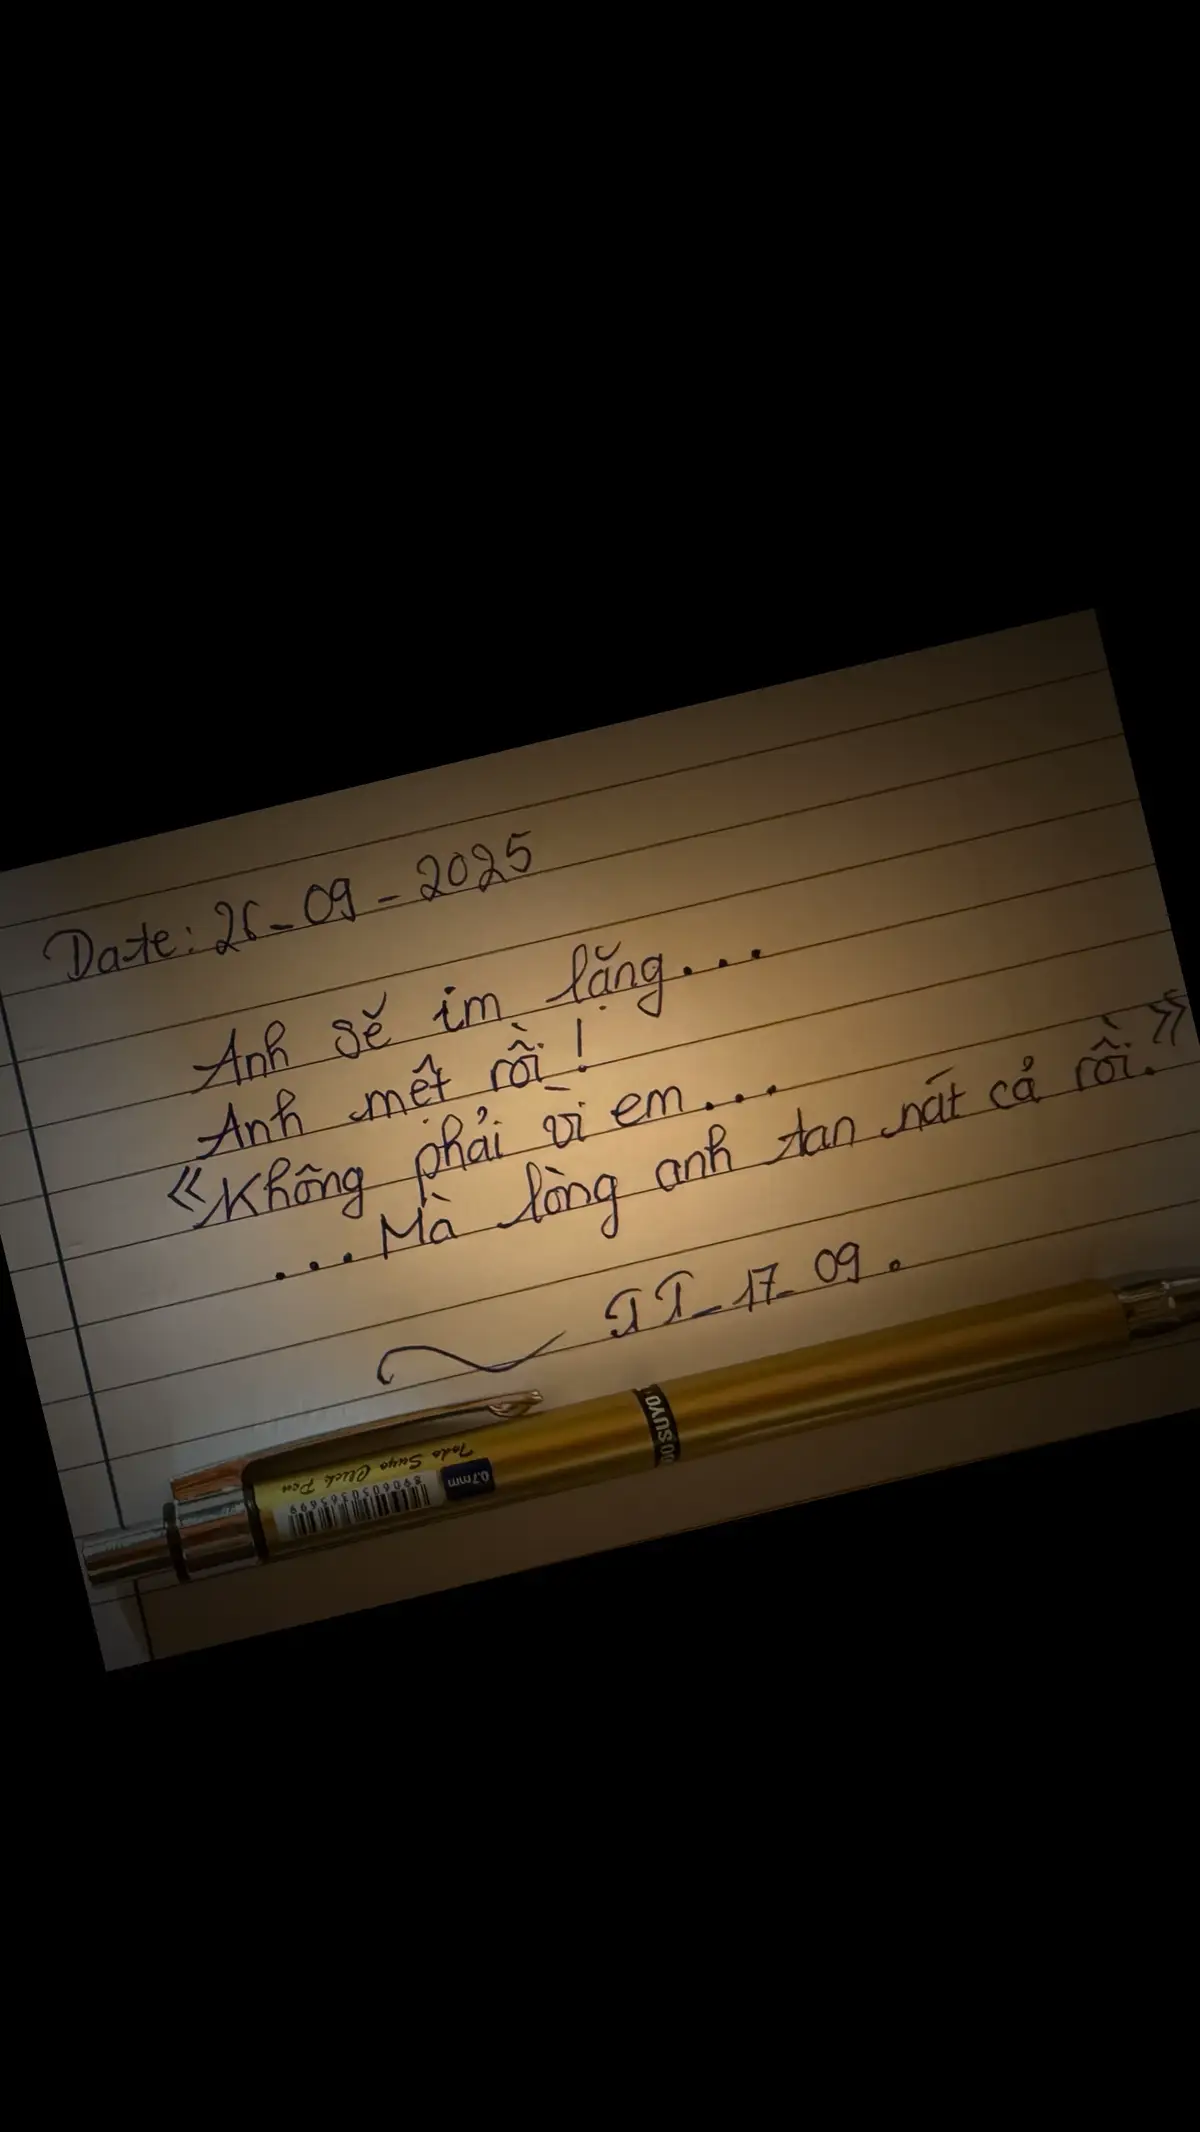 Date: 26-09-2025
Anh sẽ im lặng...
Anh mệt rồi!
«Không phải vì em...
...Mà lòng anh tan nát cả rồi.»
TT_17_09.
SUYO
0.7mm
Todo Suyo Click Pen
8906050365699